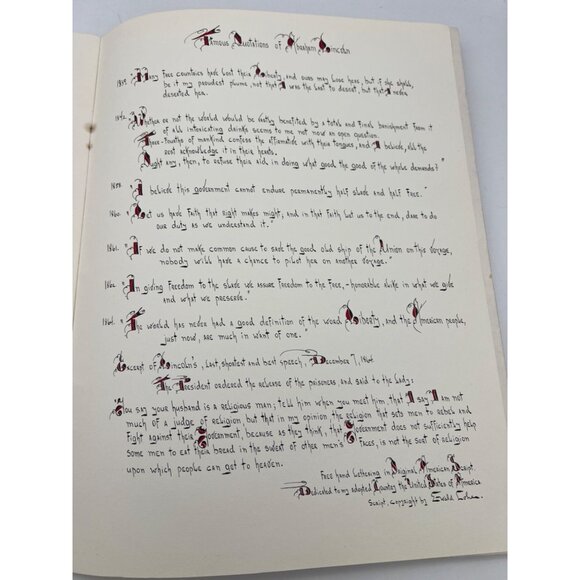 Famous Quotations of Abraham Lincoln
1839. "Many free countries have lost their Liberty, and ours may lose hers, but if she shall,
be it my proudest plume, not that I was the last to desert, but that I never
deserted her.
1842. "Whether or not the world would be vastly benefited by a total and final banishment from it
of all intoxicating drinks seems to me not now an open question.
Three-fourths of mankind confess the affirmative with their tongues, and I believe, all the
rest acknowledge it in their hearts.
Ought any, then, to refuse their aid in doing what good the good of the whole demands?"
1858. "I believe this government cannot endure permanently half slave and half free."
1860. "Let us have faith that right makes might, and in that faith let us to the end, dare to do
our duty as we understand it."
1861. "If we do not make common cause to save the good old ship of the Union on this voyage,
nobody will have a chance to pilot her on another voyage."
1862. "In giving freedom to the slave we assure freedom to the free, - honorable alike in what we give
and what we preserve."
1864. "The world has never had a good definition of the word Liberty, and the American people,
just now, are much in want of one.
Excerpt of Lincoln's, last, shortest and best speech, December 7, 1864
The President ordered the release of the prisoners, and said to the Lady:
"You say your husband is a religious man; tell him when you meet him, that I say I am not
much of a judge of religion, but that in my opinion the religion that sets men to rebel and
fight against their Government, because, as they think, that Government does not sufficiently help
some men to eat their bread in the sweat of other men's Faces, is not the sort of religion
upon which people can get to heaven.
Free hand Lettering in Original American Script.
Dedicated to my adopted Country the United States of America
Script, copyright by Ewald